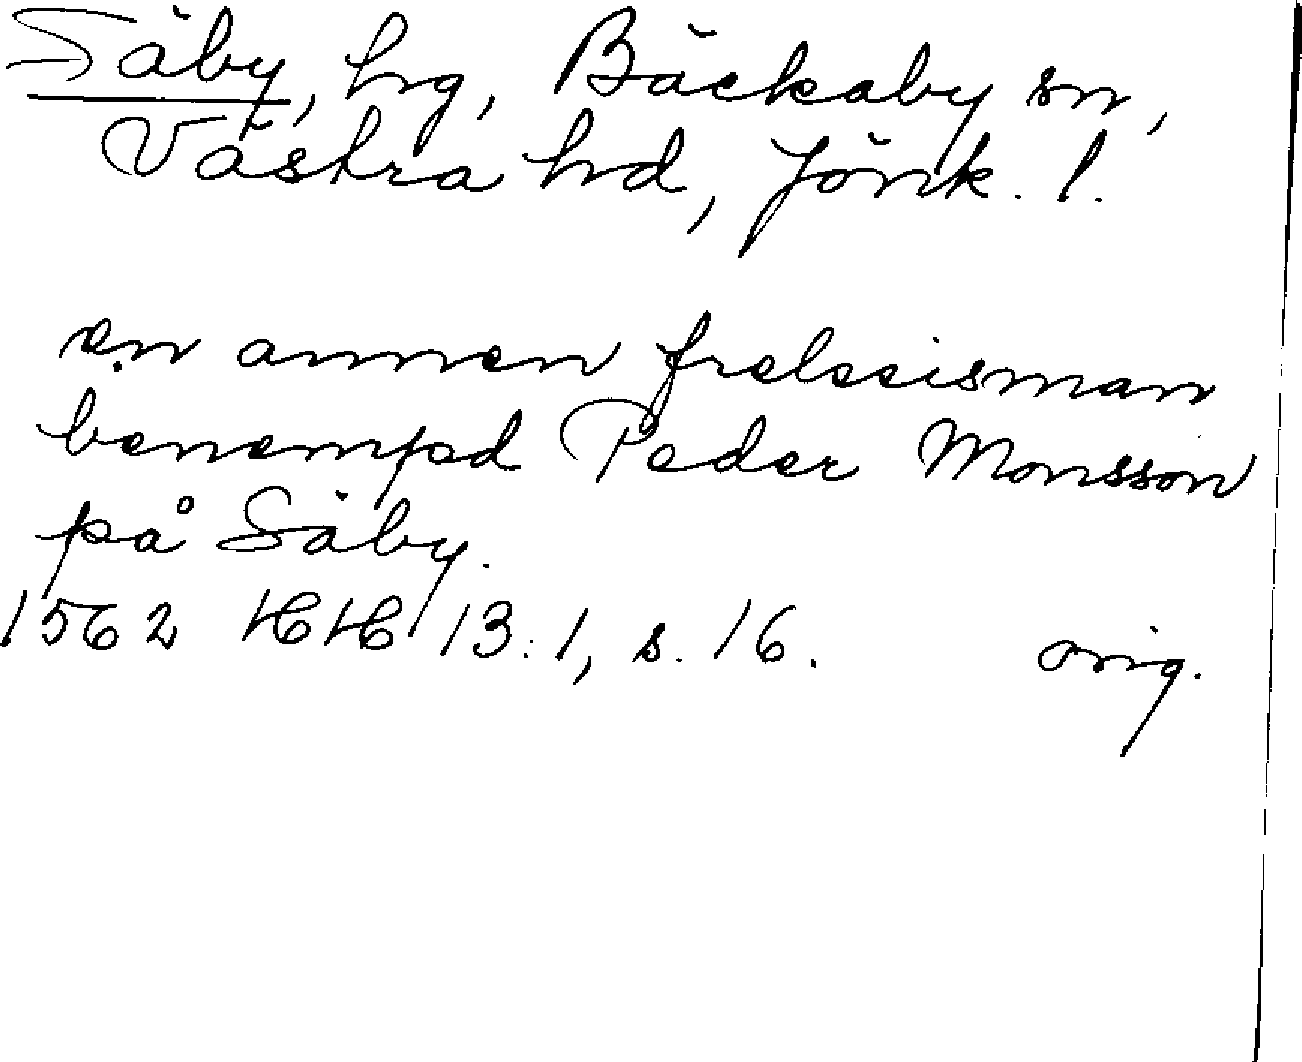 Säby, hg, Bäckaby sn,
Västra hd, Jönk. l.
en annen frelssisman
benempd Peder Monsson
på Säby.
1562 HH 13:1, s. 16. orig.